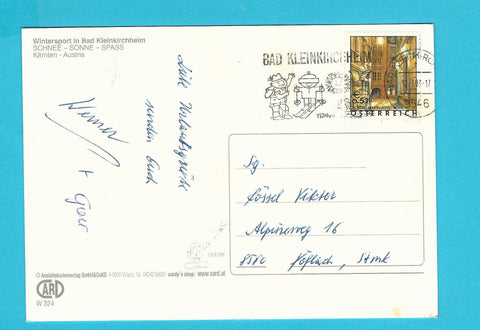 Wintersport in Bad Kleinkirchheim
SCHNEE – SONNE – SPASS
Kärnten - Austria
Liebe Urlaubsgrüße
senden Euch
Werner
+
BAD KLEINKIRCHHEIM
ÖSTERREICH
9546
Sg.
Gössel Viktor
Alpineweg 16
8580 Köflach, Stmk
© Ansichtskartenverlag GmbH&CoKG
A-9500 Villach, Tel.
cardy's shop: www.card.at
CARD
W 324